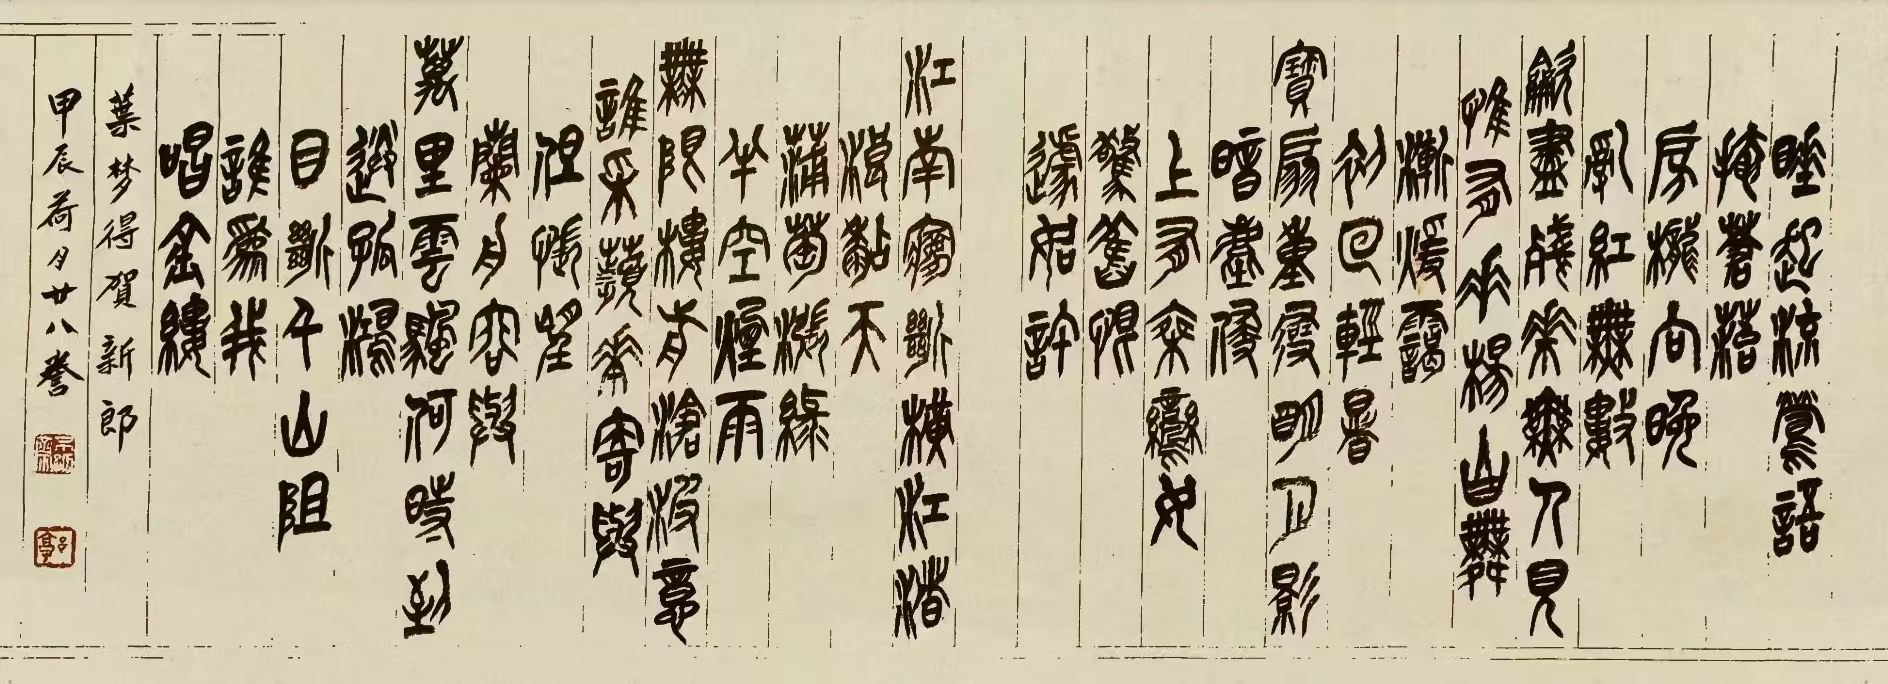 睡起流鶯語
掩蒼苔
房櫳向晚
亂紅無數
龡盡殘花無人見
惟有垂楊自舞
漸暖靄
初回輕暑
寶扇重尋明月影
暗塵侵
上有乘鸞女
驚舊恨
遽如許
江南夢斷橫江渚
浪黏天
蒲萄漲綠
半空煙雨
無限樓前滄波意
誰采蘋花寄與
但悵望
蘭舟容與
萬里雲颿何時到
送孤鴻
目斷千山阻
誰為我
唱金縷
葉梦得賀新郎
甲辰荷月廿八誊